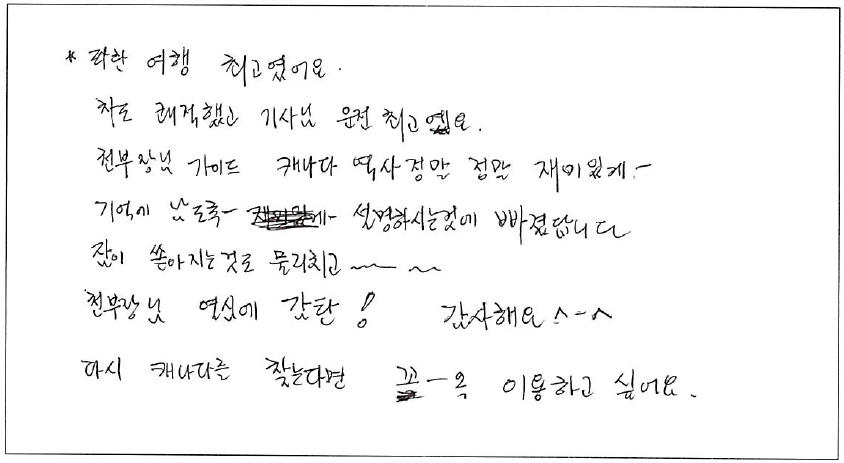 * 파란 여행 최고였어요.
차도 쾌적했고 기사님 운전 최고였요.
천부장님 가이드 캐나다 역사 정말 정말 재미있게.-
기억에 남도록- 설명하시는것에 빠졌답니다
잠이 쏟아지는것도 물리치고 ~~ ~~
천부장님 열심에 감탄! 감사해요 ^-^
다시 캐나다를 찾는다면 꼬-옥 이용하고 싶어요.